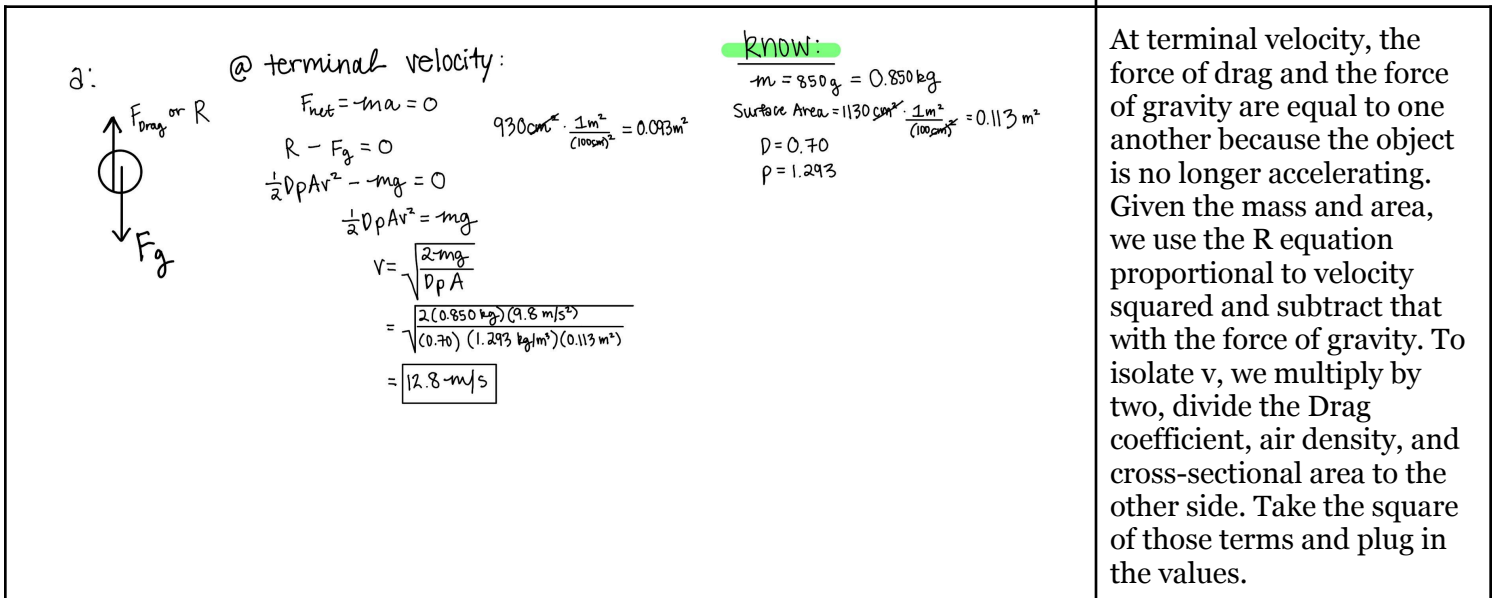 a:
F_Drag or R
F_g
@ terminal velocity:
F_net = ma = 0
R - F_g = 0
½DρAv² - mg = 0
½DρAv² = mg
v = √(2mg / DρA)
= √(2(0.850 kg)(9.8 m/s²) / (0.70) (1.293 kg/m³)(0.113 m²))
= 12.8 m/s
930cm² · 1m²/(100cm)² = 0.093m²
know:
m = 850g = 0.850kg
Surface Area = 1130 cm² · 1m²/(100cm)² = 0.113 m²
D = 0.70
ρ = 1.293
At terminal velocity, the
force of drag and the force
of gravity are equal to one
another because the object
is no longer accelerating.
Given the mass and area,
we use the R equation
proportional to velocity
squared and subtract that
with the force of gravity. To
isolate v, we multiply by
two, divide the Drag
coefficient, air density, and
cross-sectional area to the
other side. Take the square
of those terms and plug in
the values.